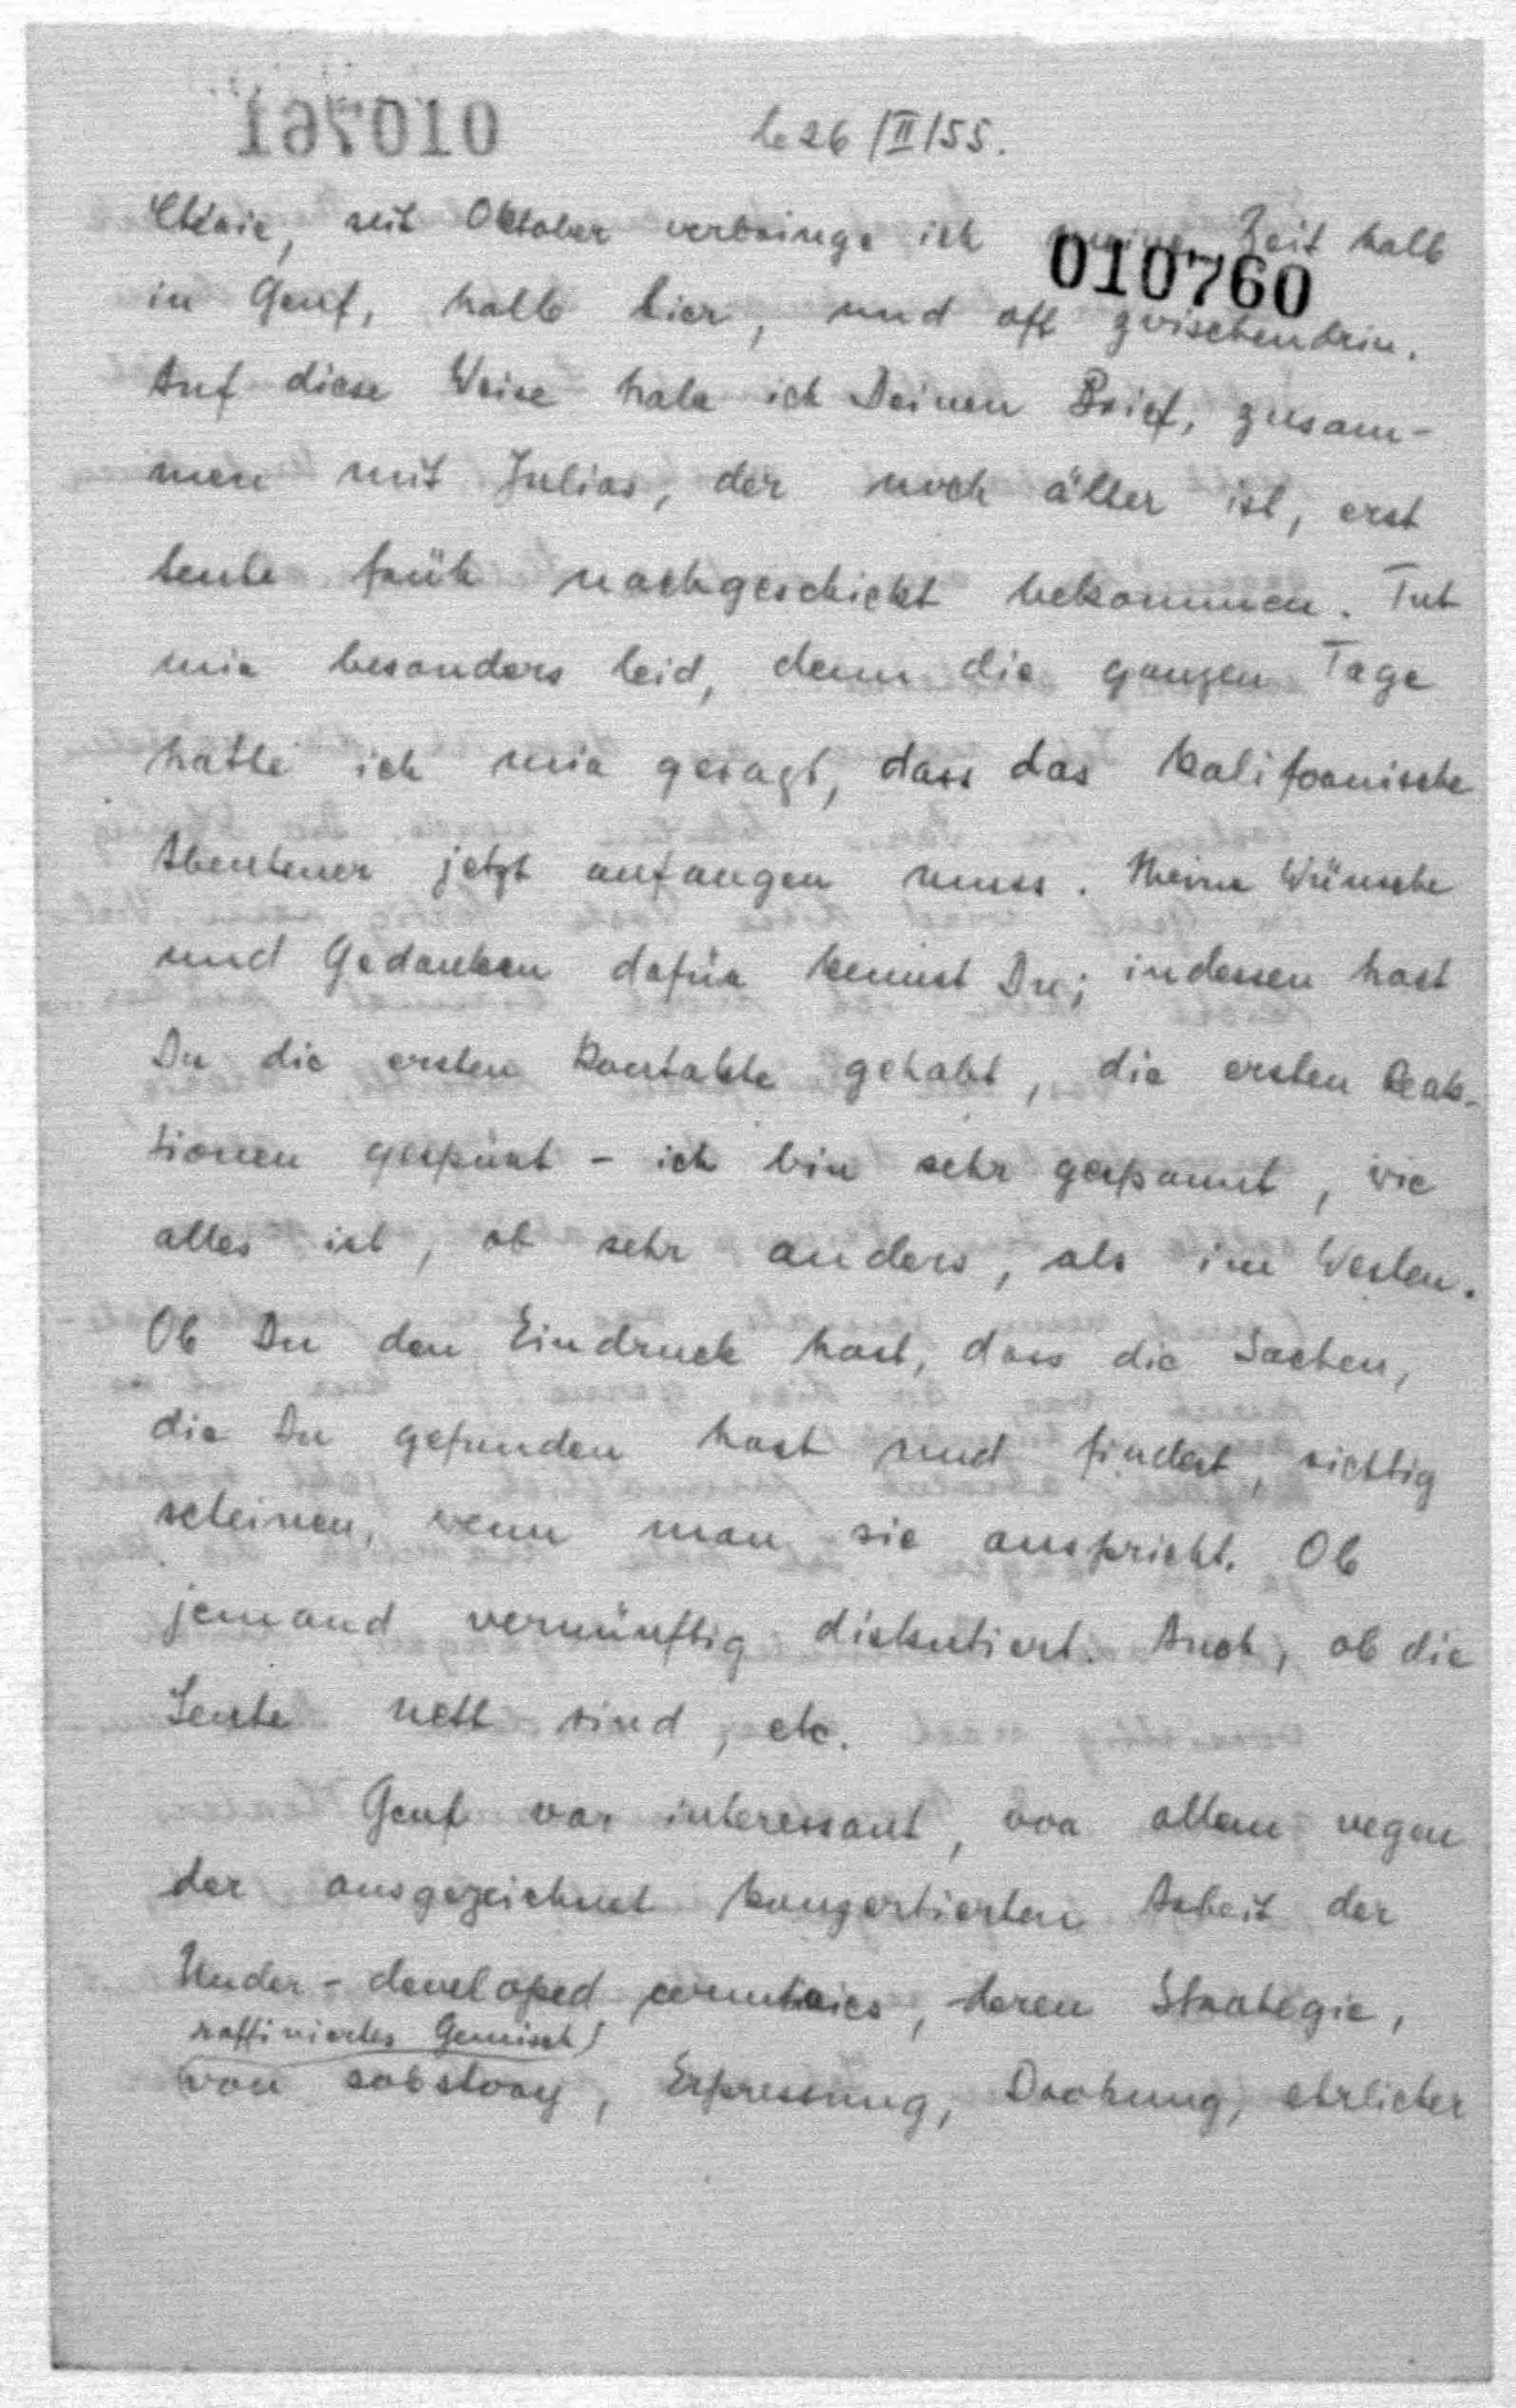 le 26/II/55.
Chérie, seit Oktober verbringe ich meine Zeit halb
010760
in Genf, halb hier, und oft zwischendrin.
Auf diese Weise habe ich Deinen Brief, zusam-
men mit Julias, der noch älter ist, erst
heute früh nachgeschickt bekommen. Tut
mir besonders leid, denn die ganzen Tage
hatte ich mir gesagt, dass das kalifornische
Abenteuer jetzt anfangen muss. Meine Wünsche
und Gedanken dafür kennst Du; indessen hast
Du die ersten Kontakte gehabt, die ersten Reak-
tionen gespürt - ich bin sehr gespannt, wie
alles ist, ob sehr anders, als im Westen.
Ob Du den Eindruck hast, dass die Sachen,
die Du gefunden hast und findest, richtig
scheinen, wenn man sie ausspricht. Ob
jemand vernünftig diskutiert. Auch, ob die
Leute nett sind, etc.
Genf war interessant, vor allem wegen
der ausgezeichnet konzertierten Arbeit der
Under-developed countries, deren Strategie,
raffiniertes Gemisch
von sobstory, Erpressung, Drohung, ehrlicher